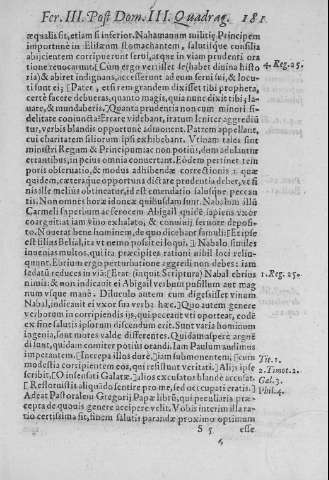 Fer. III. Post Dom. III. Quadrag. 181
æqualis sit, etiam si inferior. Nahamanum militiç Principem
importunè in Elisæum stomachantem, salutisque consilia
abijcientem corripuerunt serui, atque in viam prudenti ora
tione reuocarunt. [Cum ergo vertisset (estatur diuina histo
ria) & abiret indignans, accesserunt ad eum serui sui, & locu
ti sunt ei: [Pater, etsi rem grandem dixisset tibi propheta,
certè facere debueras, quanto magis, quia nunc dixit tibi, la-
uare, & mundaberis.] Quanta prudentia non cum minori fi-
delitate coniuncta! Errare videbant, iratum leniter aggrediū
tur, verbis blandis opportunè admonent. Patrem appellant,
cui charitatem filiorum ipsi exhibebant. Vtinam tales sint
ministri Regum & Principum, ac non potiùs, dum adulantur
errantibus, in peius omnia conuertant. Eodem pertinet tem
poris obseruatio, & modus adhibendæ correctionis: quæ
quidem, cæteraque opportunis dictare prudentia debet, vt fi
nis ille melius obtineatur, id est emendatio salusque peccan
tis. Non omnes horæ idoneæ quibusdam sunt. Nabalum illū
Carmeli superbum ac ferocem Abigail quidē sapiens vxor
coarguit: iam vino exhalato, & conuiuij feruore deposi-
to. Nouerat bene hominem, de quo dicebant famuli: [Et ipse
est filius Belial, ita vt nemo possit ei loqui.] Nabalo similes
inuenias multos, qui ita præcipites rationi nihil loci relin-
quunt. Ebrium ergo perturbatione aggredi non debes: iam
sedatū reduces in viā: [Erat (inquit Scriptura) Nabal ebrius
nimis: & non indicauit ei Abigail verbum pusillum aut mag
num vsque manè. Diluculo autem cum digessisset vinum
Nabal, indicauit ei vxor sua verba hæc.] Quo autem genere
verborum in corripiendis ijs, qui peccant vti oporteat, code
ex fine salutis ipsorum discendum erit. Sunt varia hominum
ingenia, sunt mores valde differentes. Quidam asperè argue
di sunt, quidam comiter potiùs orandi. Iam Paulum audimus
imperantem. [Increpa illos durè,] iam submonentem, [cum
modestia corripientem eos, qui resistunt veritati.] Alijs ipse
scribit, [O insensati Galatæ.] alios excusator blandè accusat.
[Resloruistis aliquādo sentire pro me, sed occupati eratis.]
Adeat Pastoralem Gregorij Papæ librū, qui peculiaria præ-
cepta de quouis genere accipere velit. Vobis interim illa ra-
tio certissima sit, finem salutis parandæ proximo optimum
S 5 esse
4. Reg. 25.
1. Reg. 25.
Tit. 1.
2. Timot. 2.
Gal. 3.
Phil. 4.